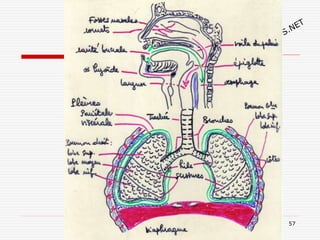 Fosses nasales
cornets
cavité buccale
os hyoïde
Larynx
voile du palais
épiglotte
œsophage
Plèvres
Pariétale
viscérale
Trachée
Bronches
Poumon droit:
lobe sup.
lobe moyen
lobe inf.
Poumon
lobe sup
lobe inf.
côtes
Hile
scissures
Diaphragme
S.NET
57